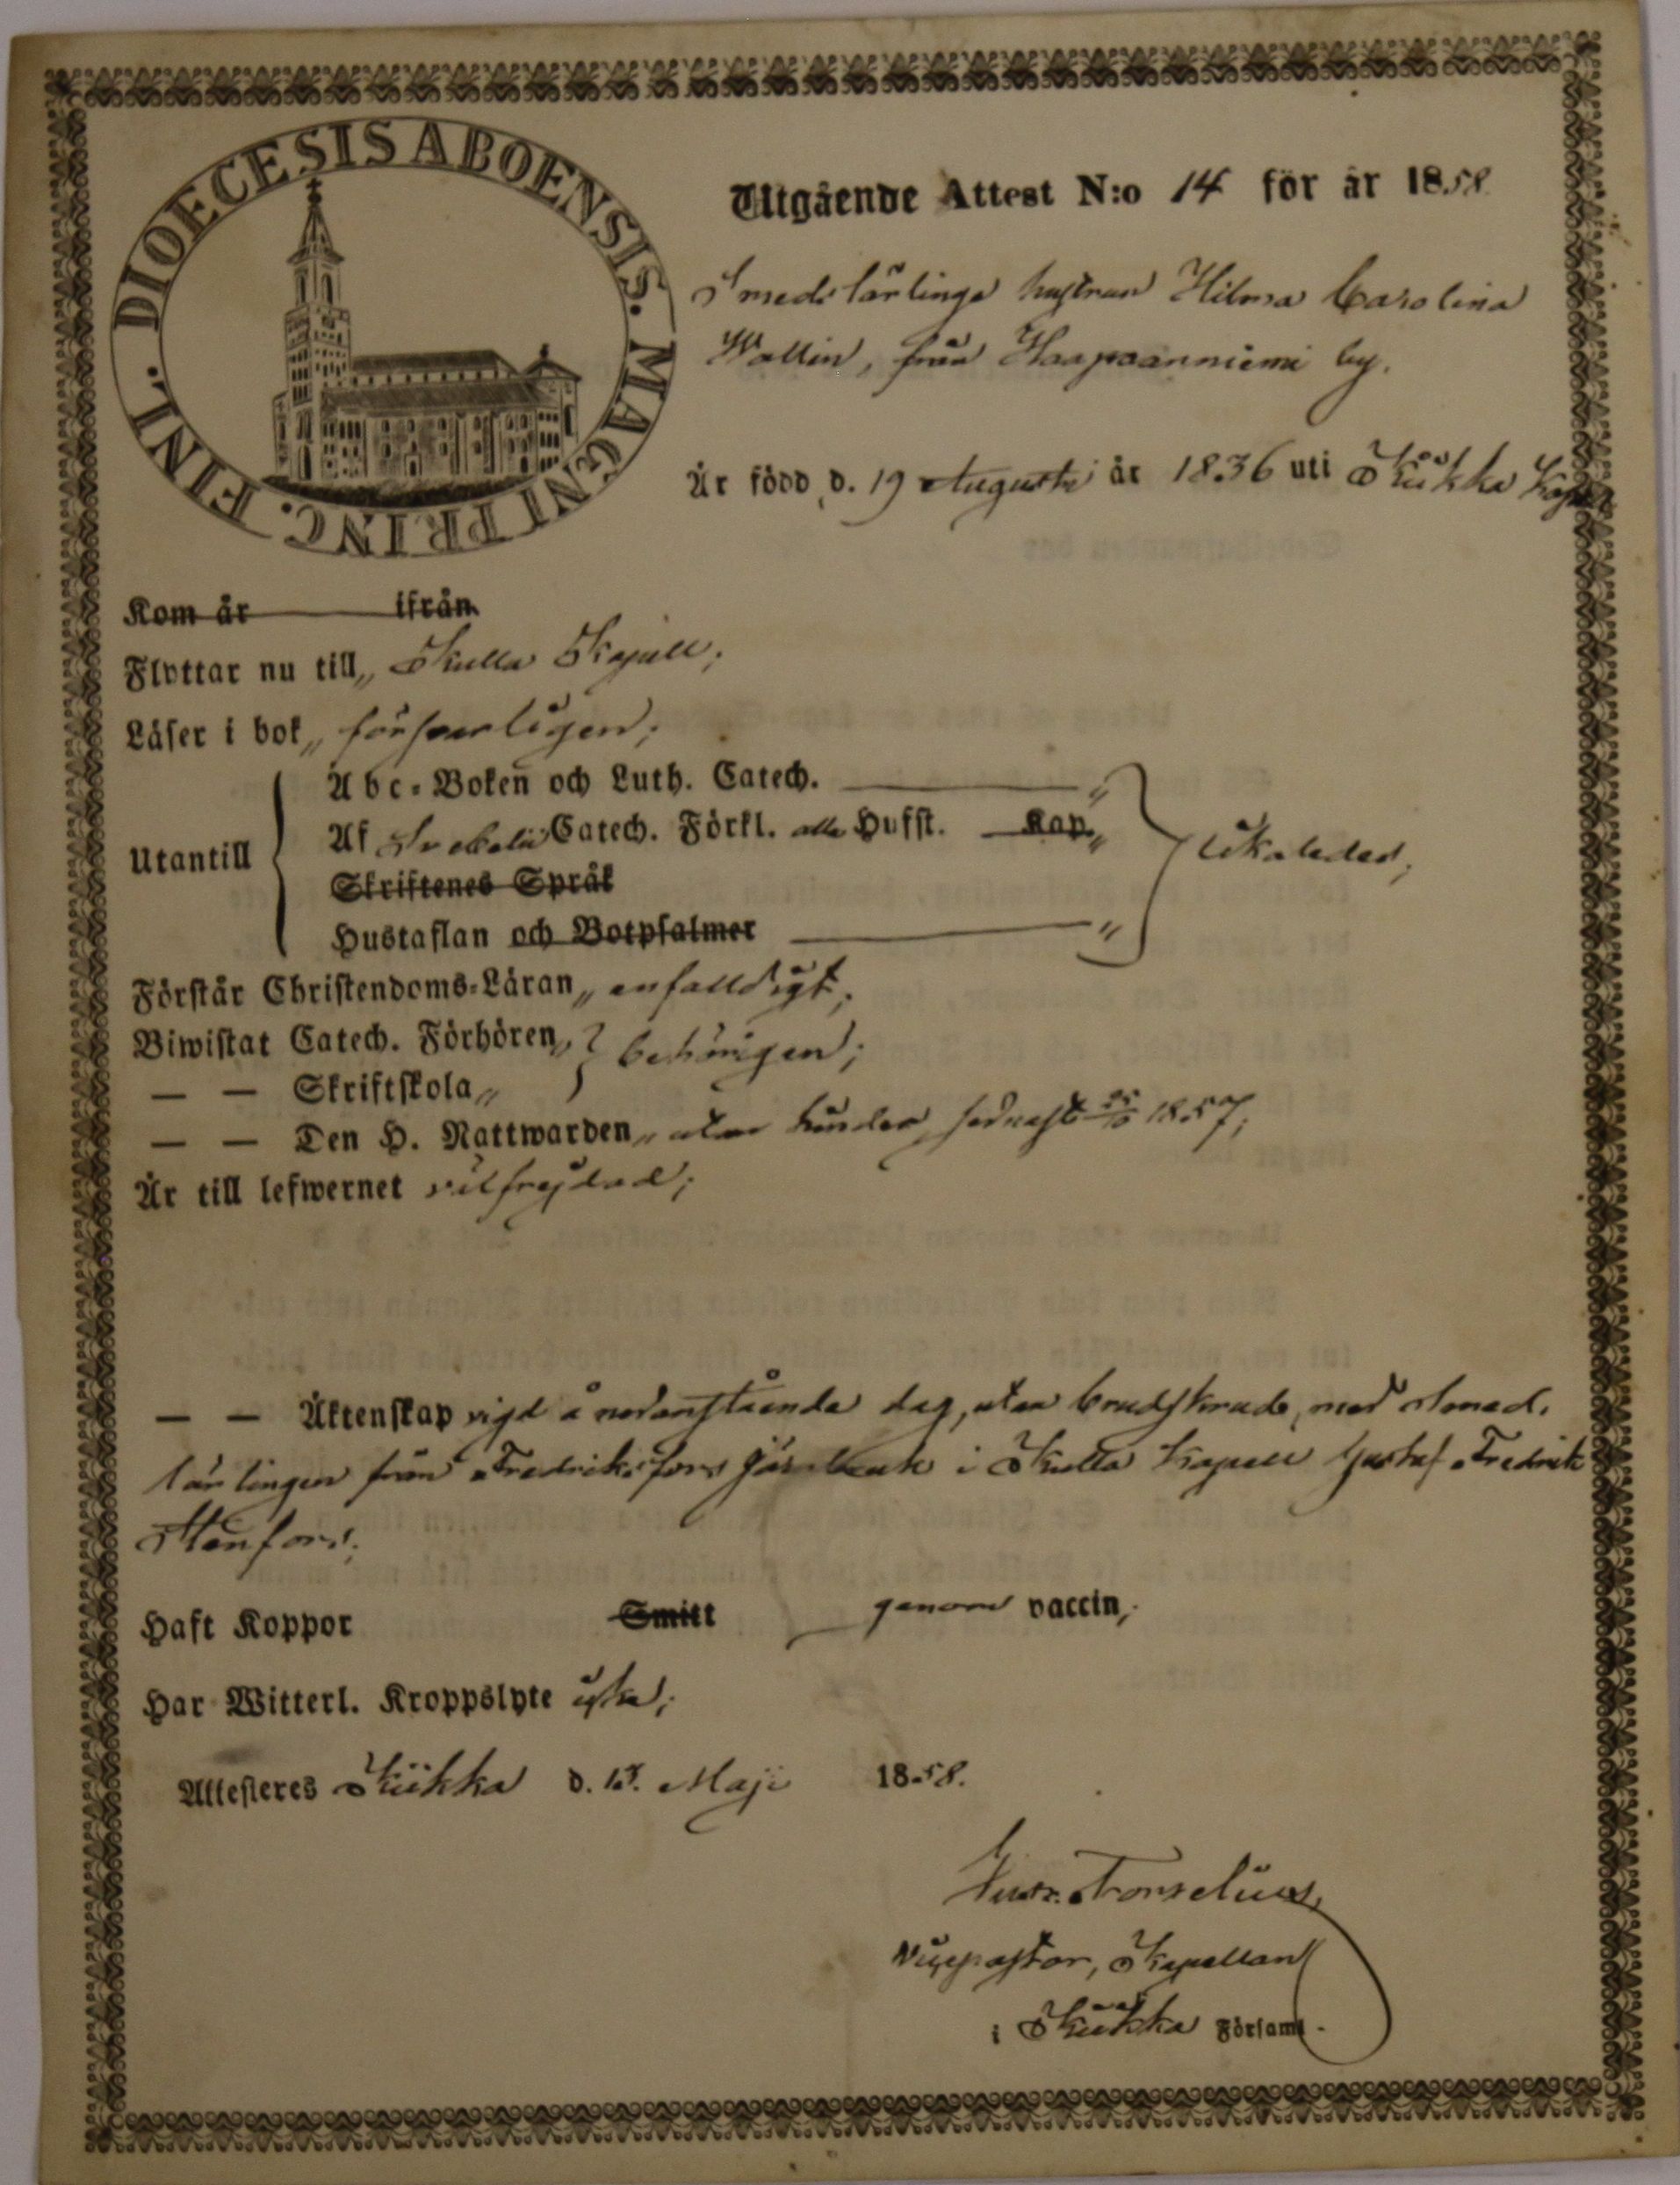 DIOECESIS ABOENSIS. MAGNI PRINC. FINL.
Utgående Attest N:o 14 för år 1858
Smedslärlings hustrun Hilma Carolina
Wallin, från Haapaanniemi by.
Är född d. 19 Augusti år 1836 uti Kiikka Kapell
Kom år ifrån
Flyttar nu till „ Kulla Kapell;
Läser i bok „ försvarligen;
Abc-Boken och Luth. Catech. „
Utantill Af Svebelii Catech. Förkl. alla Hufst. Kap. „ likaledes;
Skriftenes Språk
Hustaflan och Botpsalmer „
Förstår Christendoms-Läran „ enfaldigt;
Biwistat Catech. Förhören „ behörigen;
— — Skriftskola „
— — Den H. Nattwarden „ utan hinder, sednast 1857;
Är till lefwernet välfrejdad;
— — Äktenskap vigd å nedanstående dag, utan brudskrud, med Smeds
lärlingen från Fredriksfors Järnbruk i Kulla Kapell Gustaf Fredrik
Stenfors;
Haft Koppor Smitt genom vaccin;
Har Witterl. Kroppslyte icke;
Attesteres Kiikka d. 15 Maji 1858.
Forselius,
Vicepastor, Kapellan
i Kiikka Församl.